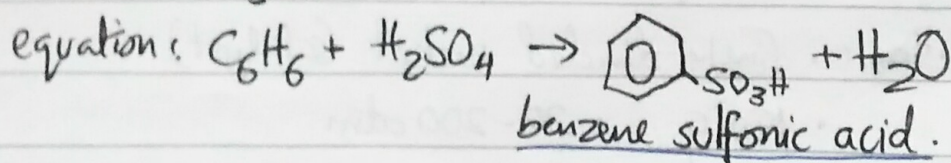 equation: C₆H₆ + H₂SO₄ → SO₃H + H₂O
benzene sulfonic acid.